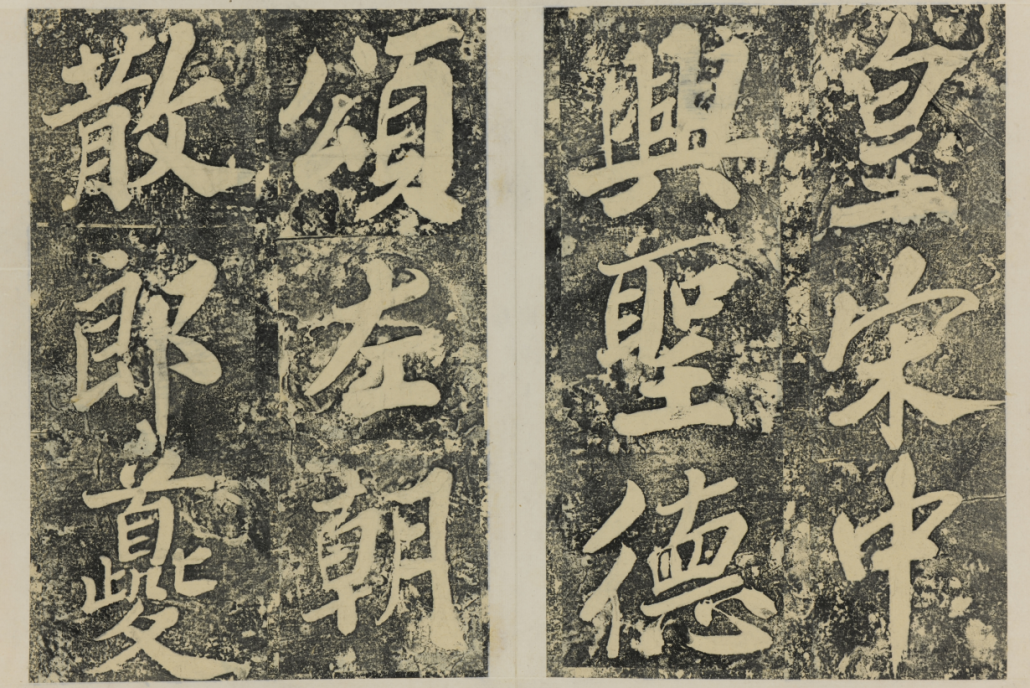 皇宋中
興聖德
頌左朝
散郎夔